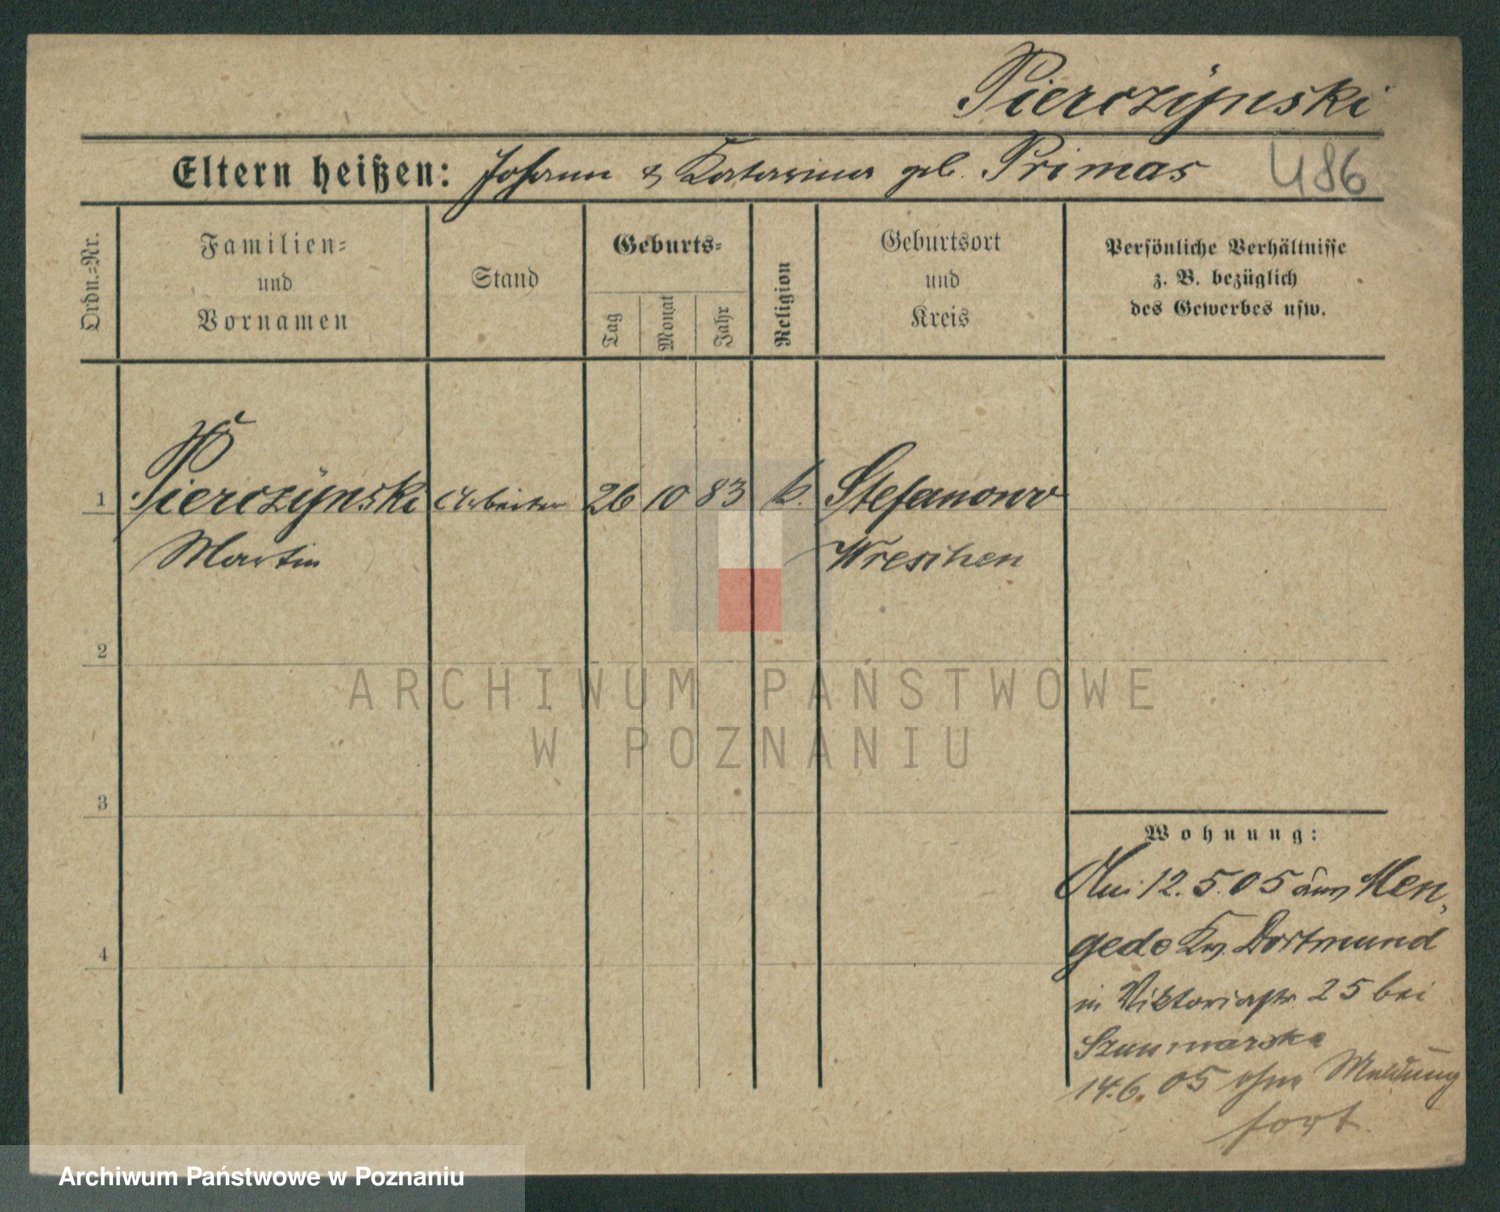 Pierczÿnski
Eltern heißen: Johann & Katarina geb. Primas
486
Ordn.=Nr.
Familien=
und
Vornamen
Stand
Geburts=
Tag
Monat
Jahr
Religion
Geburtsort
und
Kreis
Persönliche Verhältnisse
z. B. bezüglich
des Gewerbes usw.
1 Pierczÿnski Arbeiter 26 10 83 k. Stefanowo
Martin Wreschen
2
3
4
Wohnung:
12. 5. 05 Men
gede Kr. Dortmund
in Viktoriastr. 25 bei
14.6.05 ohne Meldung
fort.
ARCHIWUM PAŃSTWOWE
W POZNANIU
Archiwum Państwowe w Poznaniu